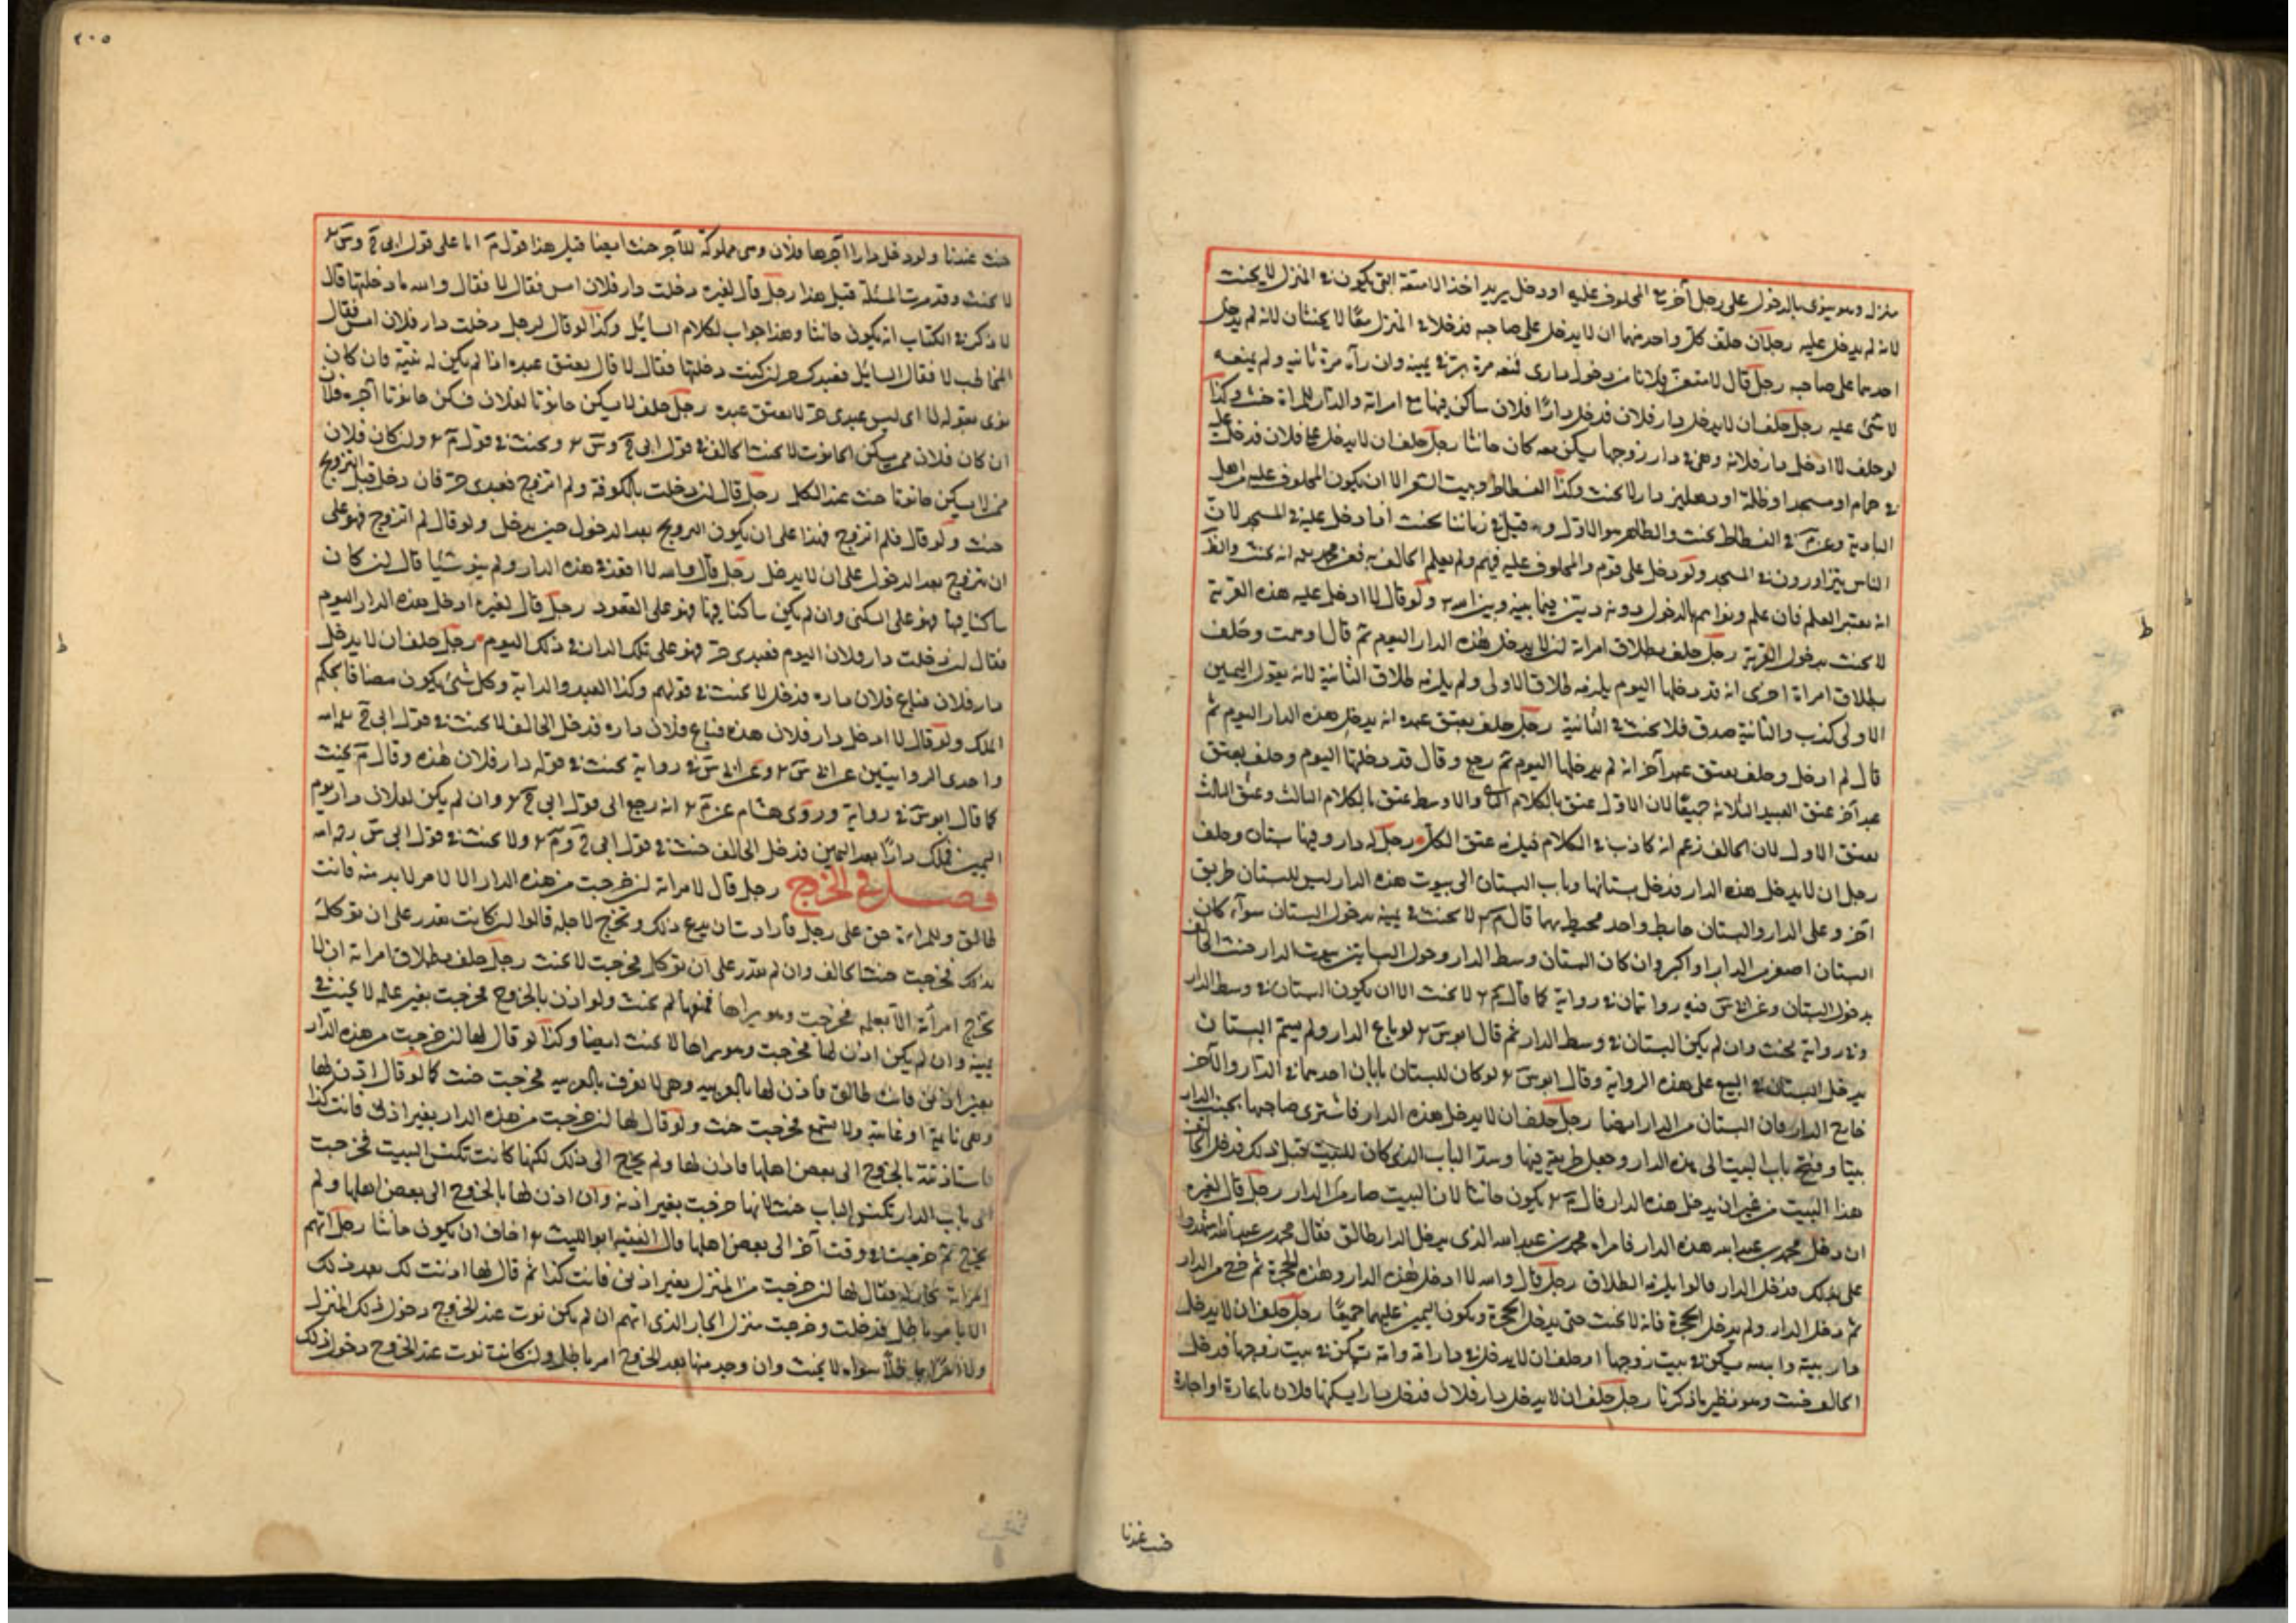 منزله وهو ينوي بالدخول على رجل آخر مع المحلوف عليه او دخل يريد اخذ الامتعة التي يكون في المنزل لا يحنث
لانه لم يدخل عليه رجلان حلف كل واحد منهما ان لا يدخل على صاحبه فدخلا في المنزل معًا لا يحنثان لانه لم يدخل
احدهما على صاحبه رجل قال لامنعن فلانا من دخول داري فمنعه مرة بر في يمينه وان رآه مرة ثانية ولم يمنعه
لا شئ عليه رجل حلف ان لا يدخل دار فلان فدخل دارًا فلان ساكن فيها مع امراته والدار للمراة حنث وكذا
لو حلف لا ادخل دار فلانة وهي في دار زوجها يسكن معه كان حانثا رجل حلف ان لا يدخل على فلان فدخل عليه
في حمام او مسجد او ظلة او دهليز دار لا يحنث وكذا الفسطاط وبيت الشعر الا ان يكون المحلوف عليه من اهل
البادية وعن م في الفسطاط يحنث والظاهر هو الاول وقيل في زماننا يحنث اذا دخل عليه في المسجد لان
الناس يتزاورون في المسجد ولو دخل على قوم والمحلوف عليه فيهم ولم يعلم الحالف به فعن محمد انه يحنث والظ
انه يعتبر العلم فان علم ونواهم بالدخول دونه دين فيما بينه وبين الله ولو قال لا ادخل عليه هذه القرية
لا يحنث بدخول القرية رجل حلف بطلاق امراته ان لا يدخل هذه الدار اليوم ثم قال وهمت وحلف
بطلاق امراة اخرى انه قد دخلها اليوم يلزمه طلاق الاولى ولم يلزمه طلاق الثانية لانه يقول اليمين
الاولى كذب والثانية صدق فلا يحنث في الثانية رجل حلف بعتق عبده انه يدخل هذه الدار اليوم ثم
قال لم ادخل وحلف بعتق عبد آخر انه لم يدخلها اليوم ثم رجع وقال قد دخلتها اليوم وحلف بعتق
عبد آخر عتق العبيد الثلاثة جميعًا لان الاول عتق بالكلام الثاني والاوسط عتق بالكلام الثالث وعتق الثالث
بعتق الاول لان الحالف زعم انه كاذب في الكلام قبله عتق الكل رجل له دار وفيها بستان وحلف
رجل ان لا يدخل هذه الدار فدخل بستانها وباب البستان الى بيوت هذه الدار ليس للبستان طريق
آخر وعلى الدار والبستان حايط واحد محيط بهما قال م لا يحنث في يمينه بدخول البستان سواء كان
البستان اصغر من الدار او اكبر وان كان البستان وسط الدار وحول البساتين بيوت الدار حنث الحالف
بدخول البستان وعن ابي س فيه روايتان في رواية كما قال م لا يحنث الا ان يكون البستان في وسط الدار
وفي رواية يحنث وان لم يكن البستان في وسط الدار ثم قال ابو س لو باع الدار ولم يسم البستان
يدخل البستان في البيع على هذه الرواية وقال ابو س لو كان للبستان بابان احدهما في الدار والآخر
خارج الدار فان البستان من الدار ايضا رجل حلف ان لا يدخل هذه الدار فاشترى صاحبها بجنب الدار
بيتا وفتح باب البيت الى هذه الدار وجعل طريقه فيها وسد الباب الذي كان للبيت قبل ذلك فدخل الحالف
هذا البيت من غير ان يدخل هذه الدار قال م يكون حانثا لان البيت صار من الدار رجل قال لغيره
ان دخل محمد بن عبد الله هذه الدار فامراة محمد بن عبد الله الذي يدخل الدار طالق فقال محمد بن عبد الله اشهدوا
على بذلك فدخل الدار قالوا يلزمه الطلاق رجل قال والله لا ادخل هذه الدار وهذه الحجرة ثم خرج من الدار
ثم دخل الدار ولم يدخل الحجرة فانه لا يحنث حتى يدخل الحجرة ويكون اليمين عليهما جميعًا رجل حلف ان لا يدخل
دار بنته وابنته يسكن في بيت زوجها او حلف ان لا يدخل في دار امه وامه تسكن في بيت زوجها فدخل
الحالف حنث وهو نظير ما ذكرنا رجل حلف ان لا يدخل دار فلان فدخل دارا يسكنها فلان باعارة او اجارة
حنث عندنا
٢٠٥
حنث عندنا ولو دخل دارا آجرها فلان وهي مملوكة للآجر حنث ايضا قيل هذا قول م اما على قول ابي ح وس
لا يحنث وقد مرت المسئلة قبل هذا رجل قال لغيره دخلت دار فلان امس فقال لا فقال والله ما دخلتها قال
لا ذكر في الكتاب انه يكون حانثا وهذا جواب لكلام السايل وكذا لو قال لرجل دخلت دار فلان امس فقال
المخاطب لا فقال السايل فعبدك حر ان كنت دخلتها فقال لا قال يعتق عبده اذا لم يكن له نية فان كان
نوى بقوله لا اي ليس عبدي حر لا يعتق عبده رجل حلف لا يسكن حانوتا لفلان فسكن حانوتا آجره فلان
ان كان فلان ممن يسكن الحانوت لا يحنث الحالف في قول ابي ح وس ويحنث في قول م وان كان فلان
ممن لا يسكن حانوتا حنث عند الكل رجل قال ان دخلت بالكوفة ولم اتزوج فعبدي حر فان دخل قبل التزويج
حنث ولو قال فلم اتزوج فهذا على ان يكون التزويج بعد الدخول حين يدخل ولو قال ثم لم اتزوج فهو على
ان يتزوج بعد الدخول على ان لا يدخل رجل قال والله لا اقعد في هذه الدار ولم ينو شيئا قال ان كان
ساكنا فيها فهو على السكنى وان لم يكن ساكنا فيها فهو على القعود رجل قال لغيره ادخل هذه الدار اليوم
فقال ان دخلت دار فلان اليوم فعبدي حر فهو على تلك الدار في ذلك اليوم رجل حلف ان لا يدخل
دار فلان فباع فلان داره فدخل لا يحنث في قولهم وكذا العبد والدابة وكل شئ يكون مضافا بحكم
الملك ولو قال لا ادخل دار فلان هذه فباع فلان داره فدخل الحالف لا يحنث في قول ابي ح رحمه الله
واحدى الروايتين عن ابي س وعن ابي س في رواية يحنث في قوله دار فلان هذه وقال م يحنث
كما قال ابو س في رواية وروى هشام عن م انه رجع الى قول ابي ح وان لم يكن لفلان دار يوم
اليمين فملك دارًا بعد اليمين فدخل الحالف حنث في قول ابي ح وم ولا يحنث في قول ابي س رحمه الله
فصل في الخروج رجل قال لامراته ان خرجت من هذه الدار الا لامر لا بد منه فانت
طالق وللمراة حق على رجل فارادت ان يدع ذلك وتخرج لاجله قالوا ان كانت تقدر على ان توكل
بذلك فخرجت حنث الحالف وان لم تقدر على ان توكل فخرجت لا يحنث رجل حلف بطلاق امراته ان لا
تخرج امرأته الا بعلمه فخرجت وهو يراها فمنعها لم يحنث ولو اذن بالخروج فخرجت بغير علمه لا يحنث في
يمينه وان لم يكن اذن لها فخرجت وهو يراها لا يحنث ايضا وكذا لو قال لها ان خرجت من هذه الدار
بغير اذني فانت طالق فاذن لها بالعربية وهي لا تعرف بالعربية فخرجت حنث كما لو قال اذن لها
وهي نائمة او غائبة ولا تسمع فخرجت حنث ولو قال لها ان خرجت من هذه الدار بغير اذني فانت كذا
فاستاذنته بالخروج الى بعض اهلها فاذن لها ولم تخرج الى ذلك لكنها كانت تكنس البيت فخرجت
الى باب الدار تكنس الباب حنث لانها خرجت بغير اذنه وان اذن لها بالخروج الى بعض اهلها ولم
تخرج ثم خرجت في وقت آخر الى بعض اهلها قال الفقيه ابو الليث اخاف ان يكون حانثا رجل اتهم
امراته بجاره فقال لها ان خرجت من المنزل بغير اذني فانت كذا ثم قال لها اذنت لك بعد ذلك
الا بامر باطل فدخلت وخرجت منزل الجار الذي اتهم ان لم يكن نوت عند الخروج دخول ذلك المنزل
ولا امرًا باطلاً سواه لا يحنث وان وجد منها بعد الخروج امر باطل وان كانت نوت عند الخروج دخول ذلك